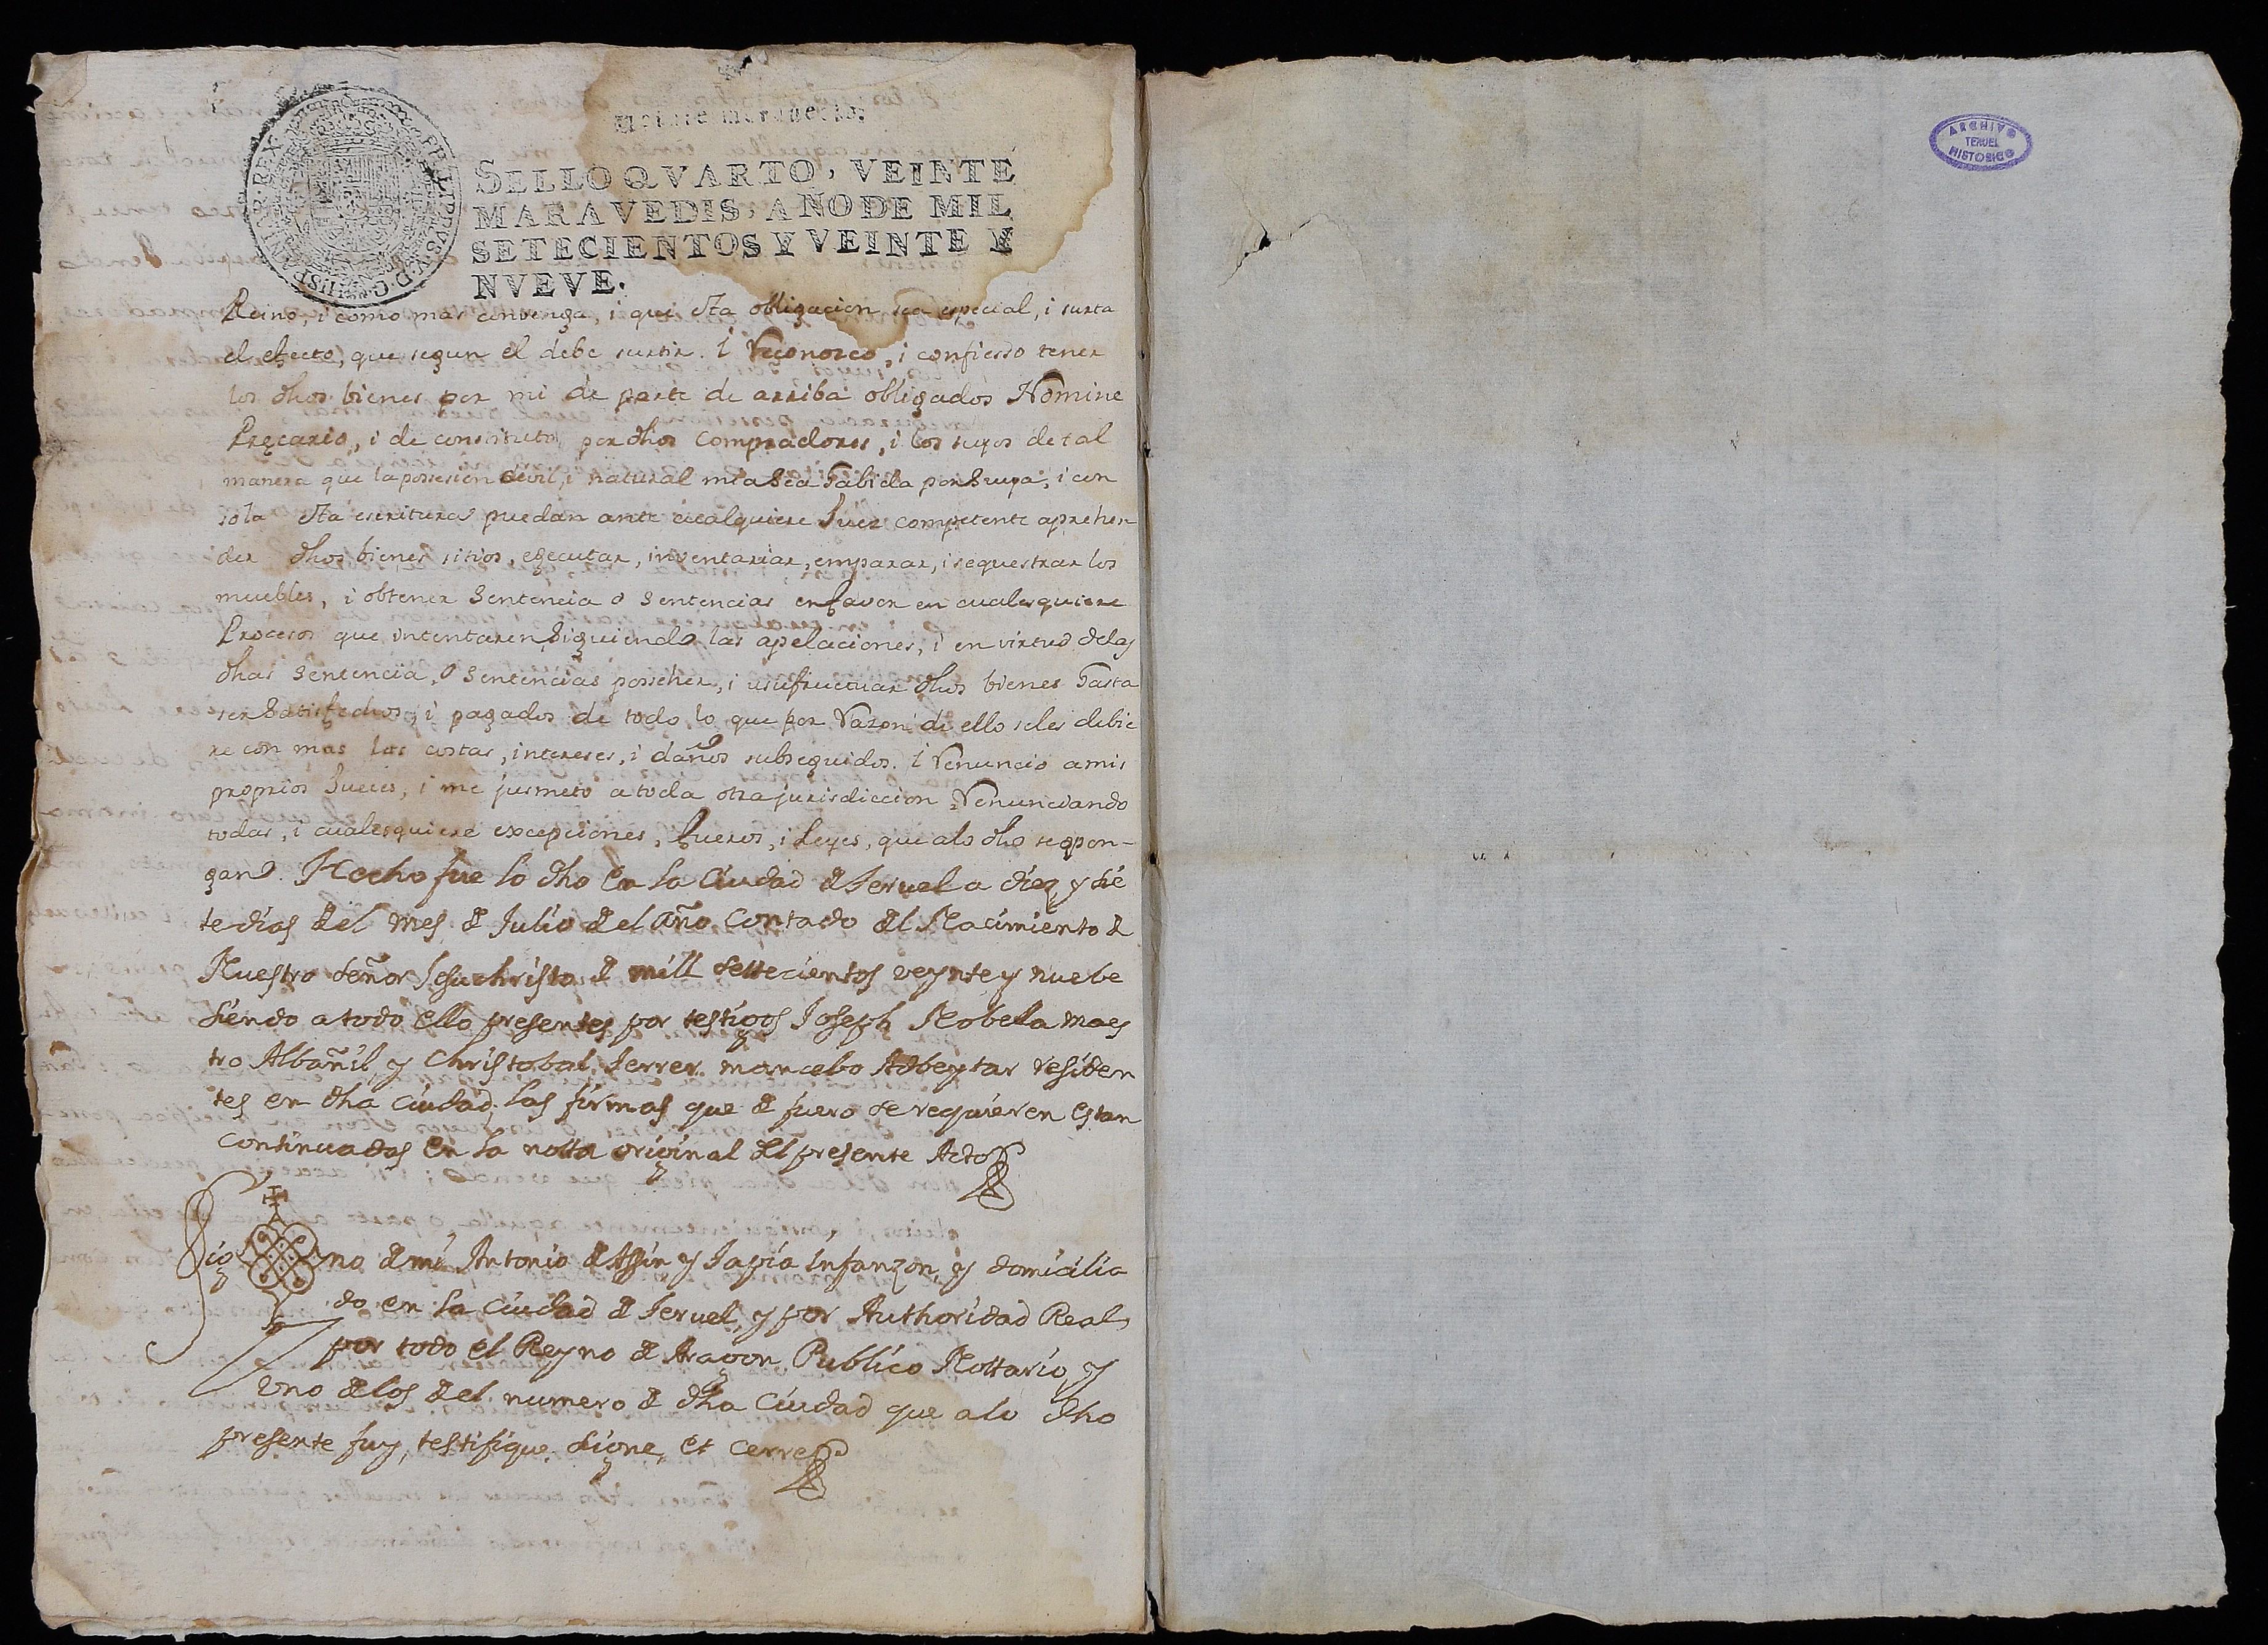 veinte maravedis.
SELLO QVARTO, VEINTE
MARAVEDIS, AÑO DE MIL
SETECIENTOS Y VEINTE Y
NVEVE.
Reino, i como mas convenga, i que esta obligacion sea especial, i surta
el efecto, que segun el debe surtir. I Reconozco, i confiesso tener
los dhos bienes por mi de parte de arriba obligados Nomine
Precario, i de constituto por dhos compradores, i los suyos de tal
manera que la possesion civil, i natural mia sea habida por suya, i con
sola esta escritura puedan ante cualquiere Juez competente aprehen
der dhos bienes sitios, egecutar, inventariar, emparar, i sequestrar los
muebles, i obtener sentencia o sentencias en favor en cualesquiere
Processos que intentaren siguiendo las apelaciones, i en virtud de las
dhas sentencia, o sentencias posseher, i usufructuar dhos bienes hasta
ser satisfechos, i pagados de todo lo que por razon de ello seles debie
re con mas las costas, intereses, i daños subseguidos. I Renuncio a mis
proprios Jueces, i me jusmeto a toda otra jurisdiccion Renunciando
todas, i cualesquiere excepciones, fueros, i Leyes, que alo dho se opon-
gan. Hecho fue lo dho en la Ciudad de Teruel a diez y sie
te dias del mes de Julio de el año contado del Nacimiento de
Nuestro señor Jesuchristo de mill settecientos veynte y nuebe
siendo a todo ello presentes por testigos Joseph Nobella maes
tro Albañil, y Christobal Ferrer mancebo Albeytar residen
tes en dha Ciudad, las firmas que de fuero se requieren estan
continuadas en la notta original del presente Acto
Sig no de mi Antonio de Assin y Tapia infanzon, y domicilia
do en la Ciudad de Teruel, y por Authoridad Real
por todo el Reyno de Aragon Publico Nottario, y
Uno de los de el numero de dha Ciudad que a lo dho
presente fuy, testifique signe, et cerre
ARCHIVO
TERUEL
HISTORICO